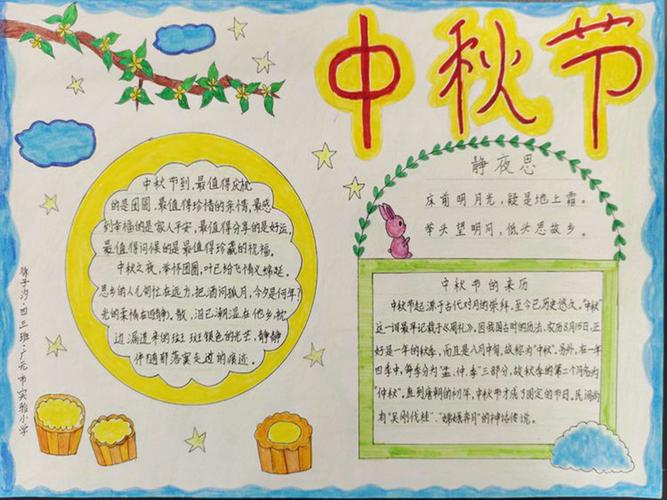 中秋节
中秋节到，最值得庆祝
的是团圆，最值得珍惜的亲情，最感
到幸福的是家人平安，最值得分享的是好运，
最值得问候的是最值得珍藏的祝福。
中秋之夜，举杯团圆，
思乡的人儿匍伏在远方，把酒问孤月，今夕是何年？
散，泪已潮湿在他乡，枕
边漏进来的斑斑银色的光芒，静静
伴随那落寞走过的痕迹。
静夜思
床前明月光，疑是地上霜。
举头望明月，低头思故乡。
中秋节的来历
中秋节起源于古代对月的崇拜，至今已历史悠久。“中秋”
这一词最早记载于《周礼》。因我国古时的历法，农历8月15日，正
好是一年的秋季，而且是八月中旬，故称为“中秋”。另外，在一年
四季中，每季分为孟、仲、季三部分，故秋季的第二个月称为
“仲秋”。直到唐朝的初年，中秋节才成了固定的节日。民间尚
有“吴刚伐桂”、“嫦娥奔月”的神话传说。
子汐·四三班·广元市实验小学